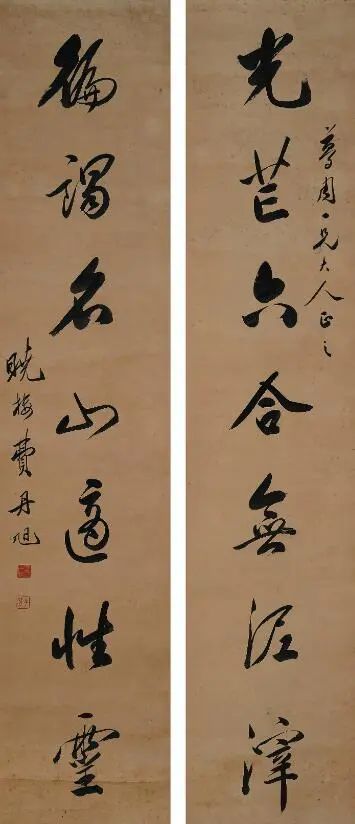 周一兄大人正之
光芒六合無泥滓
徧謁名山適性靈
曉楼費丹旭